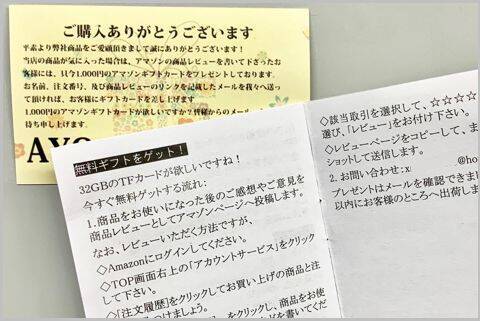 ご購入ありがとうございます
平素より弊社商品をご愛顧頂きまして誠にありがとうございます！
当店の商品が気に入った場合は、アマゾンの商品レビューを書いて下さったお
客様には、只今1,000円のアマゾンギフトカードをプレゼントしております。
お名前、注文番号、及び商品レビューのリンクを記載したメールを我々へ送っ
て頂ければ、お客様にギフトカードを差し上げます
1,000円のアマゾンギフトカードが欲しいですか？皆様からのメール
待ち申し上げます。
無料ギフトをゲット！
32GBのTFカードが欲しいですね！
今すぐ無料ゲットする流れ：
1.商品をお使いになった後のご感想やご意見を
商品レビューとしてアマゾンページへ投稿します。
なお、レビューいただく方法ですが、
◇Amazonにログインしてください。
◇TOP画面右上の「アカウントサービス」をクリック
して下さい。
◇「注文履歴」をクリックしてお買い上げの商品と注
つけましょう。
クリックし、商品をお使
を書いてくだ
◇該当取引を選択して、☆☆☆☆
選び、「レビュー」をお付け下さい。
◇レビューページをコピーして、ま
ショットして送信します。
2.お問い合わせ:x
@ho
プレゼントはメールを確認できま
以内にお客様のところへ出荷しま